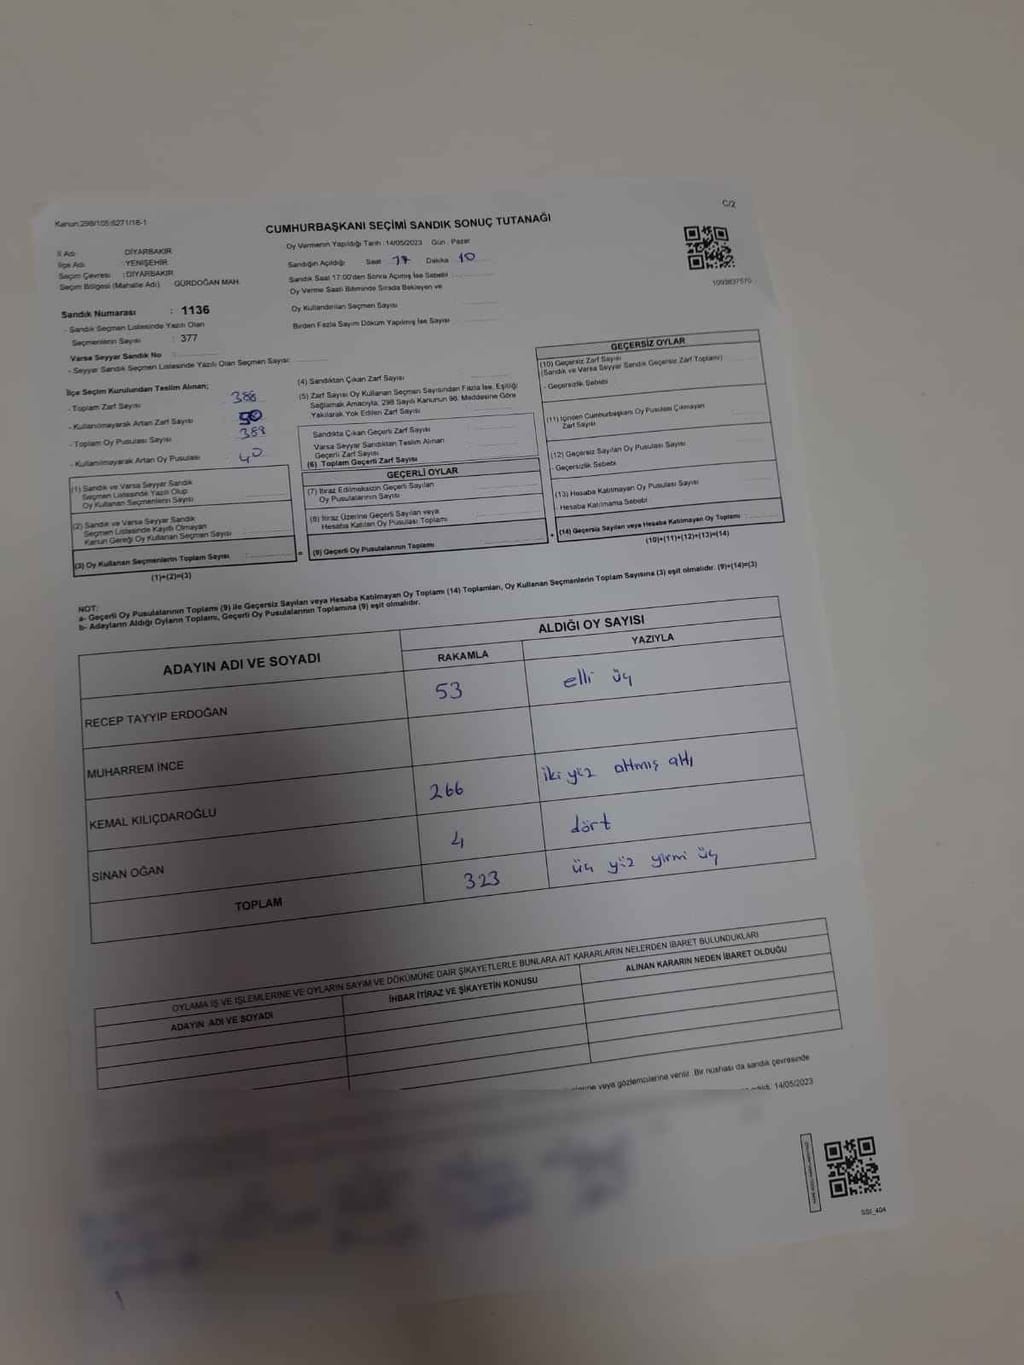 Kanun:298/105;6271/16-1
C/2
CUMHURBAŞKANI SEÇİMİ SANDIK SONUÇ TUTANAĞI
İl Adı : DİYARBAKIR
İlçe Adı : YENİŞEHİR
Seçim Çevresi : DİYARBAKIR
Seçim Bölgesi (Mahalle Adı) GÜRDOĞAN MAH.
Sandık Numarası : 1136
- Sandık Seçmen Listesinde Yazılı Olan
Seçmenlerin Sayısı : 377
Varsa Seyyar Sandık No
- Seyyar Sandık Seçmen Listesinde Yazılı Olan Seçmen Sayısı:
Oy Vermenin Yapıldığı Tarih :14/05/2023 Gün : Pazar
Sandığın Açıldığı Saat 17 Dakika 10
Sandık Saat 17:00'den Sonra Açılmış İse Sebebi
Oy Verme Saati Bitiminde Sırada Bekleyen ve
Oy Kullandırılan Seçmen Sayısı
Birden Fazla Sayım Döküm Yapılmış İse Sayısı
1093837570
İlçe Seçim Kurulundan Teslim Alınan;
- Toplam Zarf Sayısı 388
- Kullanılmayarak Artan Zarf Sayısı
- Toplam Oy Pusulası Sayısı 388
- Kullanılmayarak Artan Oy Pusulası 40
(1) Sandık ve Varsa Seyyar Sandık
Seçmen Listesinde Yazılı Olup
Oy Kullanan Seçmenlerin Sayısı
(2) Sandık ve Varsa Seyyar Sandık
Seçmen Listesinde Kayıtlı Olmayan
Kanun Gereği Oy Kullanan Seçmen Sayısı
(3) Oy Kullanan Seçmenlerin Toplam Sayısı
(1)+(2)=(3)
(4) Sandıktan Çıkan Zarf Sayısı
(5) Zarf Sayısı Oy Kullanan Seçmen Sayısından Fazla İse, Eşitliği
Sağlamak Amacıyla, 298 Sayılı Kanunun 98. Maddesine Göre
Yakılarak Yok Edilen Zarf Sayısı
Sandıkta Çıkan Geçerli Zarf Sayısı
Varsa Seyyar Sandıktan Teslim Alınan
Geçerli Zarf Sayısı
(6) Toplam Geçerli Zarf Sayısı
GEÇERLİ OYLAR
(7) İtiraz Edilmeksizin Geçerli Sayılan
Oy Pusulalarının Sayısı
(8) İtiraz Üzerine Geçerli Sayılan veya
Hesaba Katılan Oy Pusulası Toplamı
= (9) Geçerli Oy Pusulalarının Toplamı
GEÇERSİZ OYLAR
(10) Geçersiz Zarf Sayısı
(Sandık ve Varsa Seyyar Sandık Geçersiz Zarf Toplamı)
- Geçersizlik Sebebi
(11) İçinden Cumhurbaşkanı Oy Pusulası Çıkmayan
Zarf Sayısı
(12) Geçersiz Sayılan Oy Pusulası Sayısı
- Geçersizlik Sebebi
(13) Hesaba Katılmayan Oy Pusulası Sayısı
- Hesaba Katılmama Sebebi
+ (14) Geçersiz Sayılan veya Hesaba Katılmayan Oy Toplamı
(10)+(11)+(12)+(13)=(14)
NOT:
a- Geçerli Oy Pusulalarının Toplamı (9) ile Geçersiz Sayılan veya Hesaba Katılmayan Oy Toplamı (14) Toplamları, Oy Kullanan Seçmenlerin Toplam Sayısına (3) eşit olmalıdır. (9)+(14)=(3)
b- Adayların Aldığı Oyların Toplamı, Geçerli Oy Pusulalarının Toplamına (9) eşit olmalıdır.
ADAYIN ADI VE SOYADI
ALDIĞI OY SAYISI
RAKAMLA YAZIYLA
RECEP TAYYIP ERDOĞAN 53 elli üç
MUHARREM İNCE
KEMAL KILIÇDAROĞLU 266 iki yüz altmış altı
SİNAN OĞAN 4 dört
TOPLAM 323 üç yüz yirmi üç
OYLAMA İŞ VE İŞLEMLERİNE VE OYLARIN SAYIM VE DÖKÜMÜNE DAİR ŞİKAYETLERLE BUNLARA AİT KARARLARIN NELERDEN İBARET BULUNDUKLARI
ADAYIN ADI VE SOYADI İHBAR İTİRAZ VE ŞİKAYETİN KONUSU ALINAN KARARIN NEDEN İBARET OLDUĞU
veya gözlemcilerine verildi. Bir nüshası da sandık çevresinde
14/05/2023
SSI_404